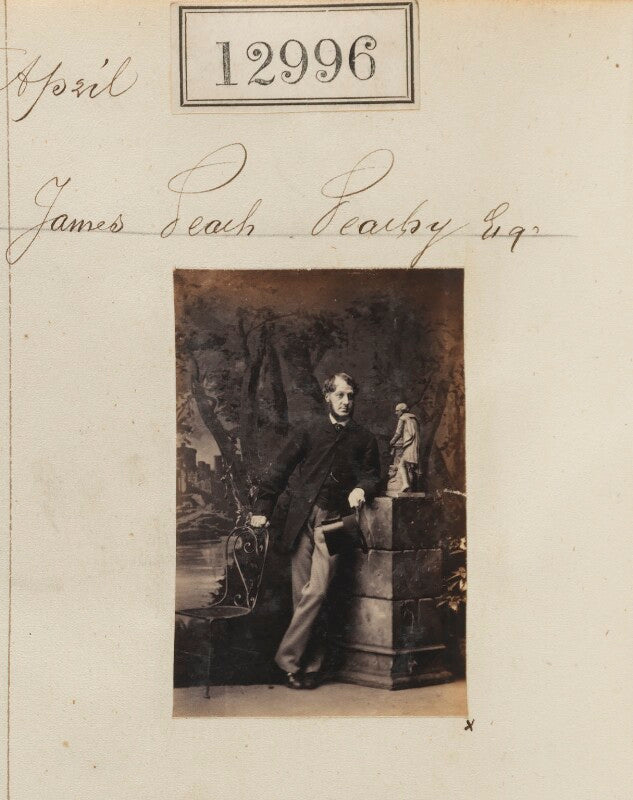 12996
April
James Peach Peachy Esqr
x